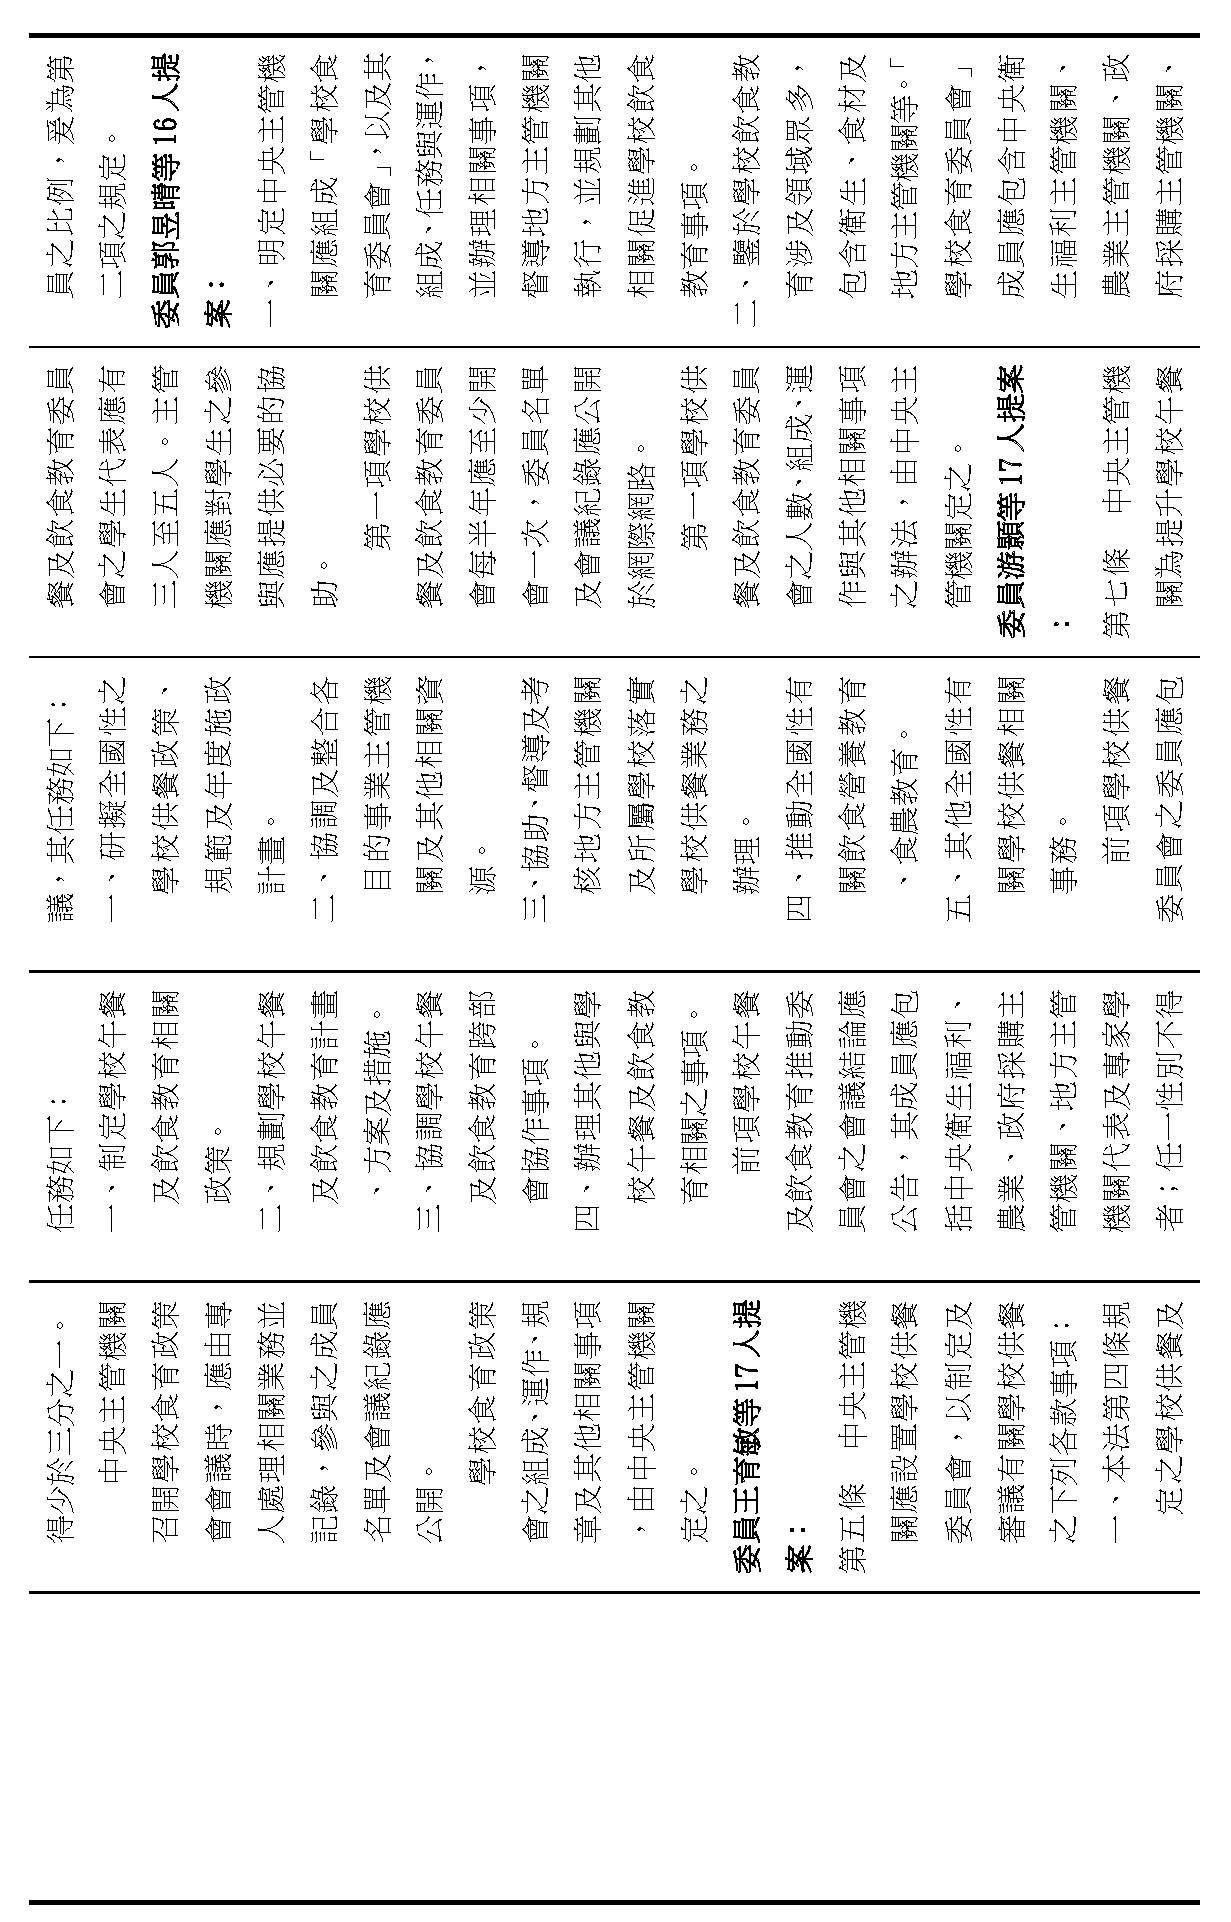 得少於三分之一。
中央主管機關
召開學校食育政策
會會議時，應由專
人處理相關業務並
記錄，參與之成員
名單及會議紀錄應
公開。
學校食育政策
會之組成、運作、規
章及其他相關事項
，由中央主管機關
定之。
委員王育敏等17人提
案：
第五條　中央主管機
關應設置學校供餐
委員會，以制定及
審議有關學校供餐
之下列各款事項：
一、本法第四條規
定之學校供餐及
任務如下：
一、制定學校午餐
及飲食教育相關
政策。
二、規劃學校午餐
及飲食教育計畫
、方案及措施。
三、協調學校午餐
及飲食教育跨部
會協作事項。
四、辦理其他與學
校午餐及飲食教
育相關之事項。
前項學校午餐
及飲食教育推動委
員會之會議結論應
公告，其成員應包
括中央衛生福利、
農業、政府採購主
管機關、地方主管
機關代表及專家學
者；任一性別不得
議，其任務如下：
一、研擬全國性之
學校供餐政策、
規範及年度施政
計畫。
二、協調及整合各
目的事業主管機
關及其他相關資
源。
三、協助、督導及考
核地方主管機關
及所屬學校落實
學校供餐業務之
辦理。
四、推動全國性有
關飲食營養教育
、食農教育。
五、其他全國性有
關學校供餐相關
事務。
前項學校供餐
委員會之委員應包
餐及飲食教育委員
會之學生代表應有
三人至五人。主管
機關應對學生之參
與應提供必要的協
助。
第一項學校供
餐及飲食教育委員
會每半年應至少開
會一次，委員名單
及會議紀錄應公開
於網際網路。
第一項學校供
餐及飲食教育委員
會之人數、組成、運
作與其他相關事項
之辦法，由中央主
管機關定之。
委員游顥等17人提案
：
第七條　中央主管機
關為提升學校午餐
員之比例，爰為第
二項之規定。
委員郭昱晴等16人提
案：
一、明定中央主管機
關應組成「學校食
育委員會」，以及其
組成、任務與運作，
並辦理相關事項，
督導地方主管機關
執行，並規劃其他
相關促進學校飲食
教育事項。
二、鑒於學校飲食教
育涉及領域眾多，
包含衛生、食材及
地方主管機關等。「
學校食育委員會」
成員應包含中央衛
生福利主管機關、
農業主管機關、政
府採購主管機關、